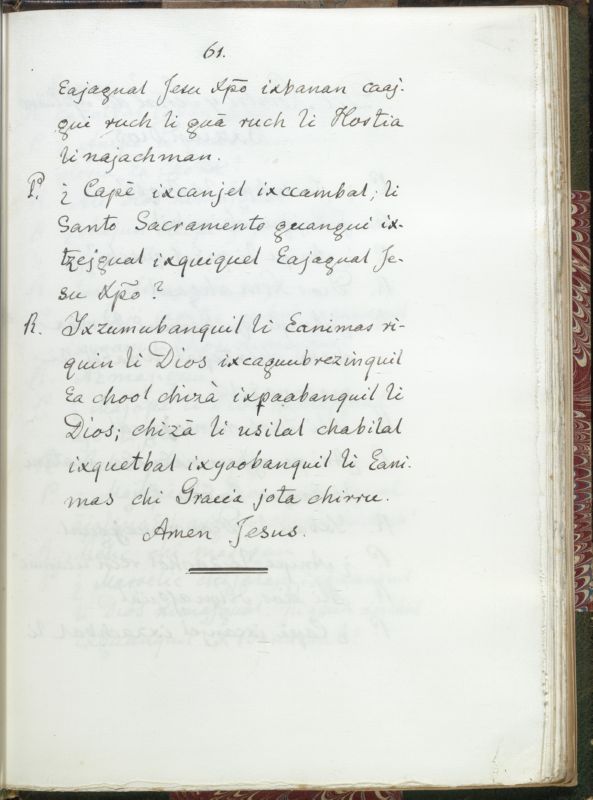 61.
Eajagual Jesu Xp̄o ixbanan caaj-
gui ruch li guā ruch li Hostia
li najachman.
P. ¿ Capē ixcanjel ixccambal; li
Santo Sacramento guangui ix-
tzejgual ixquiquel Eajagual Je-
su Xp̄o?
R. Ixzumubanquil li Eanimas ri-
quin li Dios ixcaguubrezinquil
Ea chool chizà ixpaabanquil li
Dios; chizā li usilal chabilal
ixquetbal ixyoobanquil li Eani-
mas chi Gracia jota chirru.
Amen Jesus.